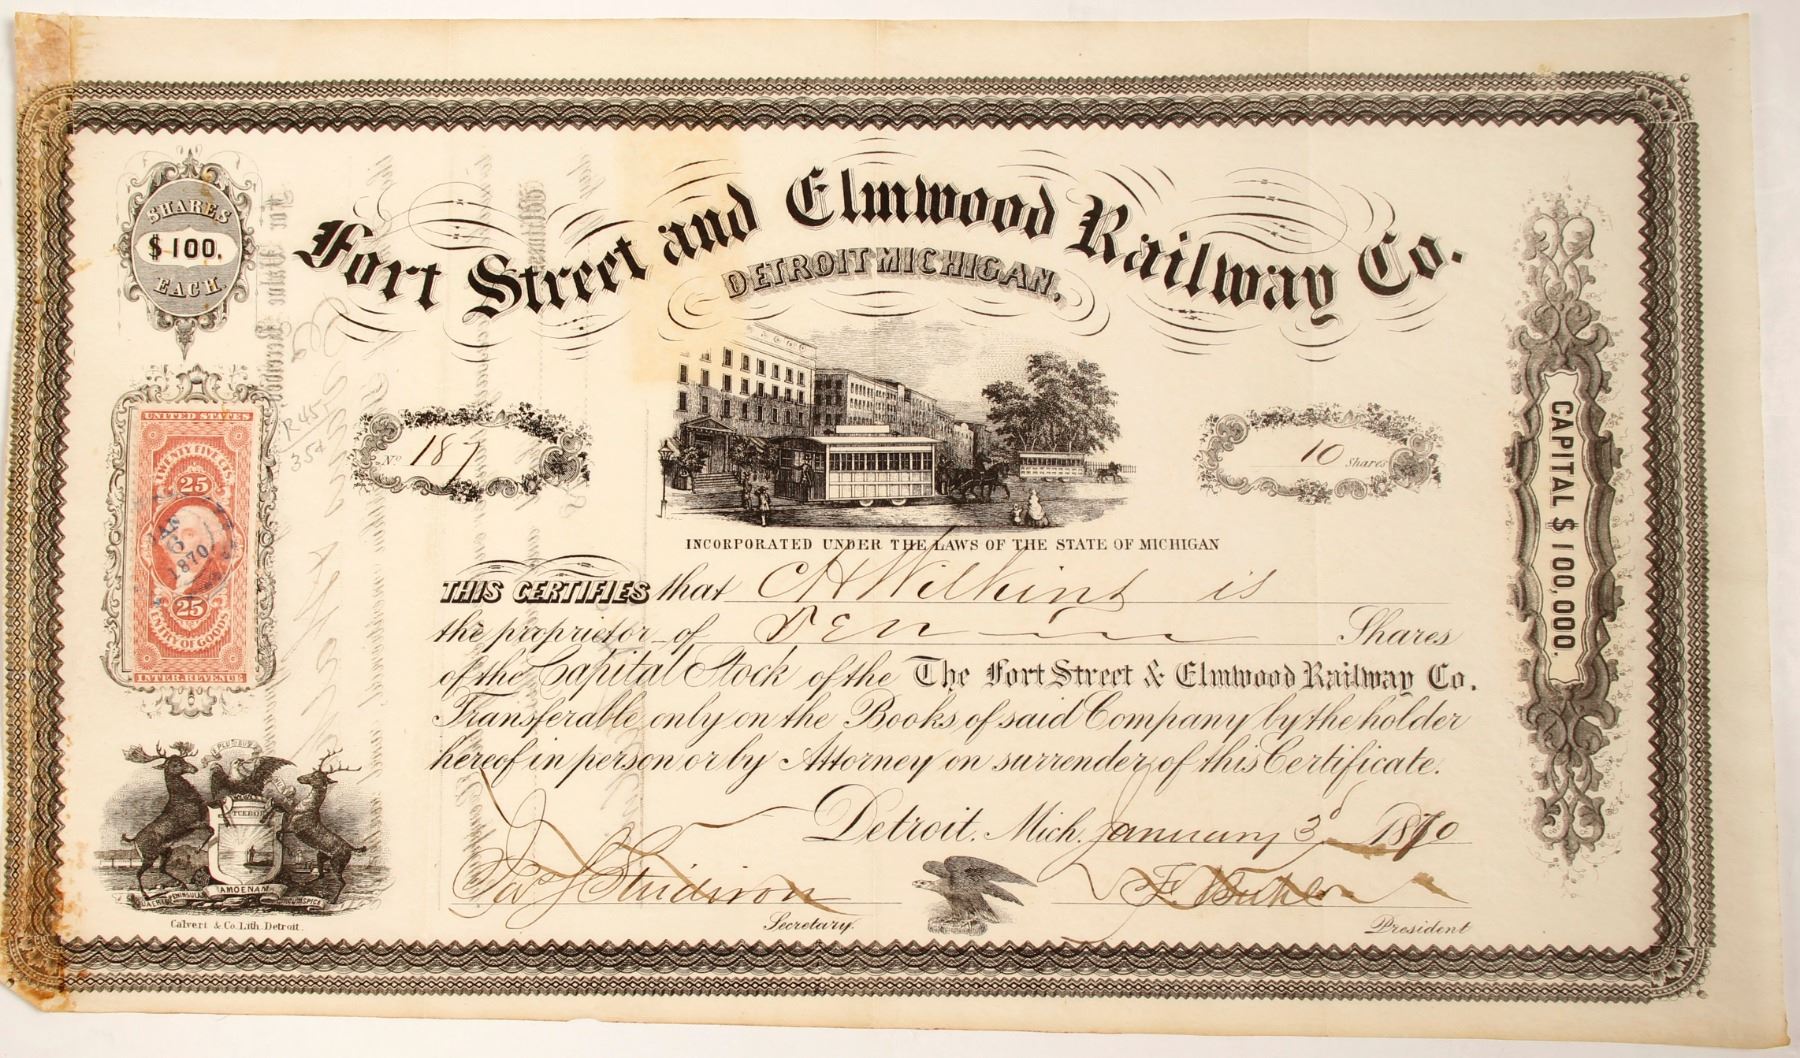 SHARES
$100.
EACH.
Fort Street and Elmwood Railway Co.
DETROIT MICHIGAN.
UNITED STATES
TWENTY FIVE CTS.
25
JAN
6
1870
25
ENTRY OF GOODS
INTER. REVENUE
R45
35¢
No 187
10 Shares
INCORPORATED UNDER THE LAWS OF THE STATE OF MICHIGAN
THIS CERTIFIES that C H Wilkins is
the proprietor of Ten Shares
of the Capital Stock of the The Fort Street & Elmwood Railway Co.
Transferable only on the Books of said Company by the holder
hereof in person or by Attorney on surrender of this Certificate.
Detroit, Mich. January 3d 1870
Secretary.
F. Buhl
President
CAPITAL $100,000.
TUEBOR
AMOENAM
PENINSULAM
CIRCUMSPICE
Calvert & Co. Lith. Detroit.